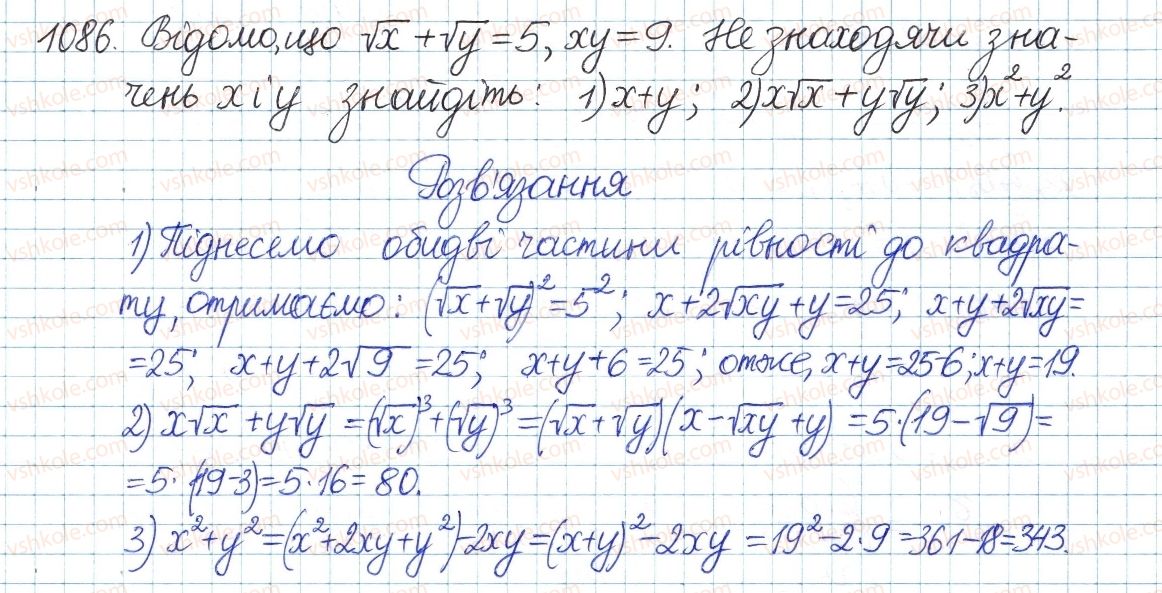 1086. Відомо, що √x + √y = 5, xy = 9. Не знаходячи зна-
чень x і y знайдіть: 1) x+y; 2) x√x + y√y; 3) x² + y².
Розв'язання
1) Піднесемо обидві частини рівності до квадра-
ту, отримаємо: (√x + √y)² = 5²; x + 2√xy + y = 25; x + y + 2√xy =
= 25; x + y + 2√9 = 25; x + y + 6 = 25; отже, x + y = 25-6; x + y = 19.
2) x√x + y√y = (√x)³ + (√y)³ = (√x + √y)(x - √xy + y) = 5·(19 - √9) =
= 5·(19-3) = 5·16 = 80.
3) x² + y² = (x² + 2xy + y²) - 2xy = (x+y)² - 2xy = 19² - 2·9 = 361 - 18 = 343.